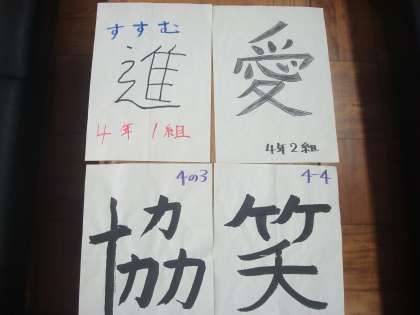 すすむ
進
4年1組
愛
4年2組
4の3
協
4-4
笑